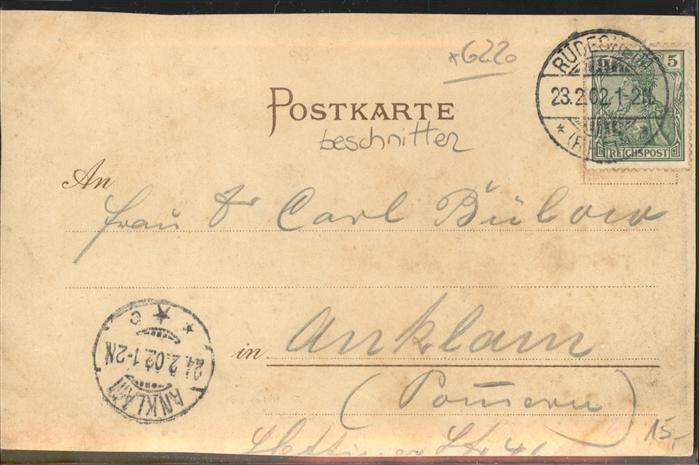 *6220
POSTKARTE
beschnitten
RÜDESHEIM
23.2.02.1-2N.
5
REICHSPOST
An
Frau Dr Carl Bülow
* * c
24.2.02.1-2N
ANKLAM
in Anklam
(Pommern)
15,-
Stettiner Str